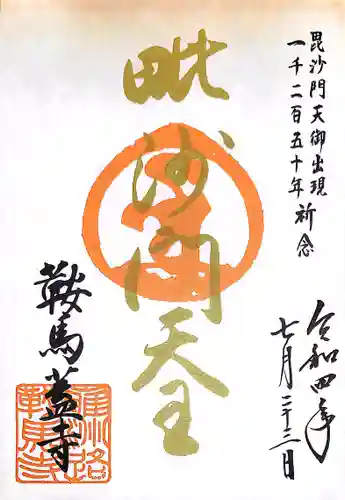 毘沙門天御出現
一千二百五十年祈念
毗沙門天王
令和四年
七月二十三日
鞍馬蓋寺